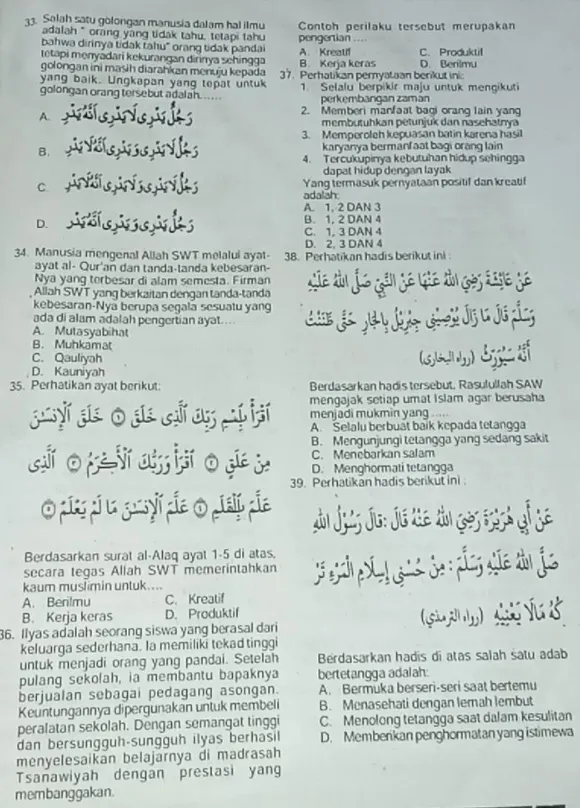 33. Salah satu golongan manusia dalam hal ilmu
adalah " orang yang tidak tahu, tetapi tahu
bahwa dirinya tidak tahu" orang tidak pandai
tetapi menyadari kekurangan dirinya sehingga
golongan ini masih diarahkan menuju kepada
yang baik. Ungkapan yang tepat untuk
golongan orang tersebut adalah......
A.
B.
C.
D.
34. Manusia mengenal Allah SWT melalui ayat-
ayat al- Qur'an dan tanda-tanda kebesaran-
Nya yang terbesar di alam semesta. Firman
Allah SWT yang berkaitan dengan tanda-tanda
kebesaran-Nya berupa segala sesuatu yang
ada di alam adalah pengertian ayat....
A. Mutasyabihat
B. Muhkamat
C. Qauliyah
D. Kauniyah
35. Perhatikan ayat berikut:
ٱقْرَأْ بِٱسْمِ رَبِّكَ ٱلَّذِى خَلَقَ ① خَلَقَ ٱلْإِنسَٰنَ
مِنْ عَلَقٍ ② ٱقْرَأْ وَرَبُّكَ ٱلْأَكْرَمُ ③ ٱلَّذِى
عَلَّمَ بِٱلْقَلَمِ ④ عَلَّمَ ٱلْإِنسَٰنَ مَا لَمْ يَعْلَمْ ⑤
Berdasarkan surat al-Alaq ayat 1-5 di atas,
secara tegas Allah SWT memerintahkan
kaum muslimin untuk....
A. Berilmu C. Kreatif
B. Kerja keras D. Produktif
36. Ilyas adalah seorang siswa yang berasal dari
keluarga sederhana. Ia memiliki tekad tinggi
untuk menjadi orang yang pandai. Setelah
pulang sekolah, ia membantu bapaknya
berjualan sebagai pedagang asongan.
Keuntungannya dipergunakan untuk membeli
peralatan sekolah. Dengan semangat tinggi
dan bersungguh-sungguh ilyas berhasil
menyelesaikan belajarnya di madrasah
Tsanawiyah dengan prestasi yang
membanggakan.
Contoh perilaku tersebut merupakan
pengertian ....
A. Kreatif C. Produktif
B. Kerja keras D. Berilmu
37. Perhatikan pernyataan berikut ini:
1. Selalu berpikir maju untuk mengikuti
perkembangan zaman
2. Memberi manfaat bagi orang lain yang
membutuhkan petunjuk dan nasehatnya
3. Memperoleh kepuasan batin karena hasil
karyanya bermanfaat bagi orang lain
4. Tercukupinya kebutuhan hidup sehingga
dapat hidup dengan layak
Yang termasuk pernyataan positif dan kreatif
adalah:
A. 1, 2 DAN 3
B. 1, 2 DAN 4
C. 1, 3 DAN 4
D. 2, 3 DAN 4
38. Perhatikan hadis berikut ini :
عَنْ عَائِشَةَ رَضِيَ اللَّهُ عَنْهَا عَنْ النَّبِيِّ صَلَّى اللَّهُ عَلَيْهِ
وَسَلَّمَ قَالَ مَا زَالَ يُوصِينِي جِبْرِيلُ بِالْجَارِ حَتَّى ظَنَنْتُ
أَنَّهُ سَيُوَرِّثُهُ (رواه البخاري)
Berdasarkan hadis tersebut, Rasulullah SAW
mengajak setiap umat Islam agar berusaha
menjadi mukmin yang .....
A. Selalu berbuat baik kepada tetangga
B. Mengunjungi tetangga yang sedang sakit
C. Menebarkan salam
D. Menghormati tetangga
39. Perhatikan hadis berikut ini :
عَنْ أَبِي هُرَيْرَةَ رَضِيَ اللَّهُ عَنْهُ قَالَ: قَالَ رَسُولُ اللَّهِ
صَلَّى اللَّهُ عَلَيْهِ وَسَلَّمَ : مِنْ حُسْنِ إِسْلَامِ الْمَرْءِ تَرْ
كُهُ مَالَا يَعْنِيْهِ (رواه الترمذي)
Berdasarkan hadis di atas salah satu adab
bertetangga adalah:
A. Bermuka berseri-seri saat bertemu
B. Menasehati dengan lemah lembut
C. Menolong tetangga saat dalam kesulitan
D. Memberikan penghormatan yang istimewa